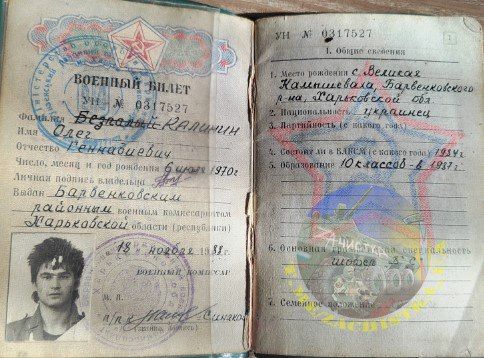 ВОЕННЫЙ БИЛЕТ
УН № 0317527
Фамилия КАЛИНИН
Имя Олег
Отчество Геннадиевич
Число, месяц и год рождения 6 июля 1970г
Личная подпись владельца
Выдан Барвенковским
районным военным комиссариатом
Харьковской области (республики)
18 ноября 1988г.
ВОЕННЫЙ КОМИССАР
М. П.
УН № 0317527
1
I. Общие сведения
1. Место рождения с. Великая
Камышеваха, Барвенковского
р-на, Харьковской обл.
2. Национальность украинец
3. Партийность (с какого года)
4. Состоит ли в ВЛКСМ (с какого года) 1984г.
5. Образование 10 классов - в 1987г.
6. Основная гражданская специальность
7. Семейное положение